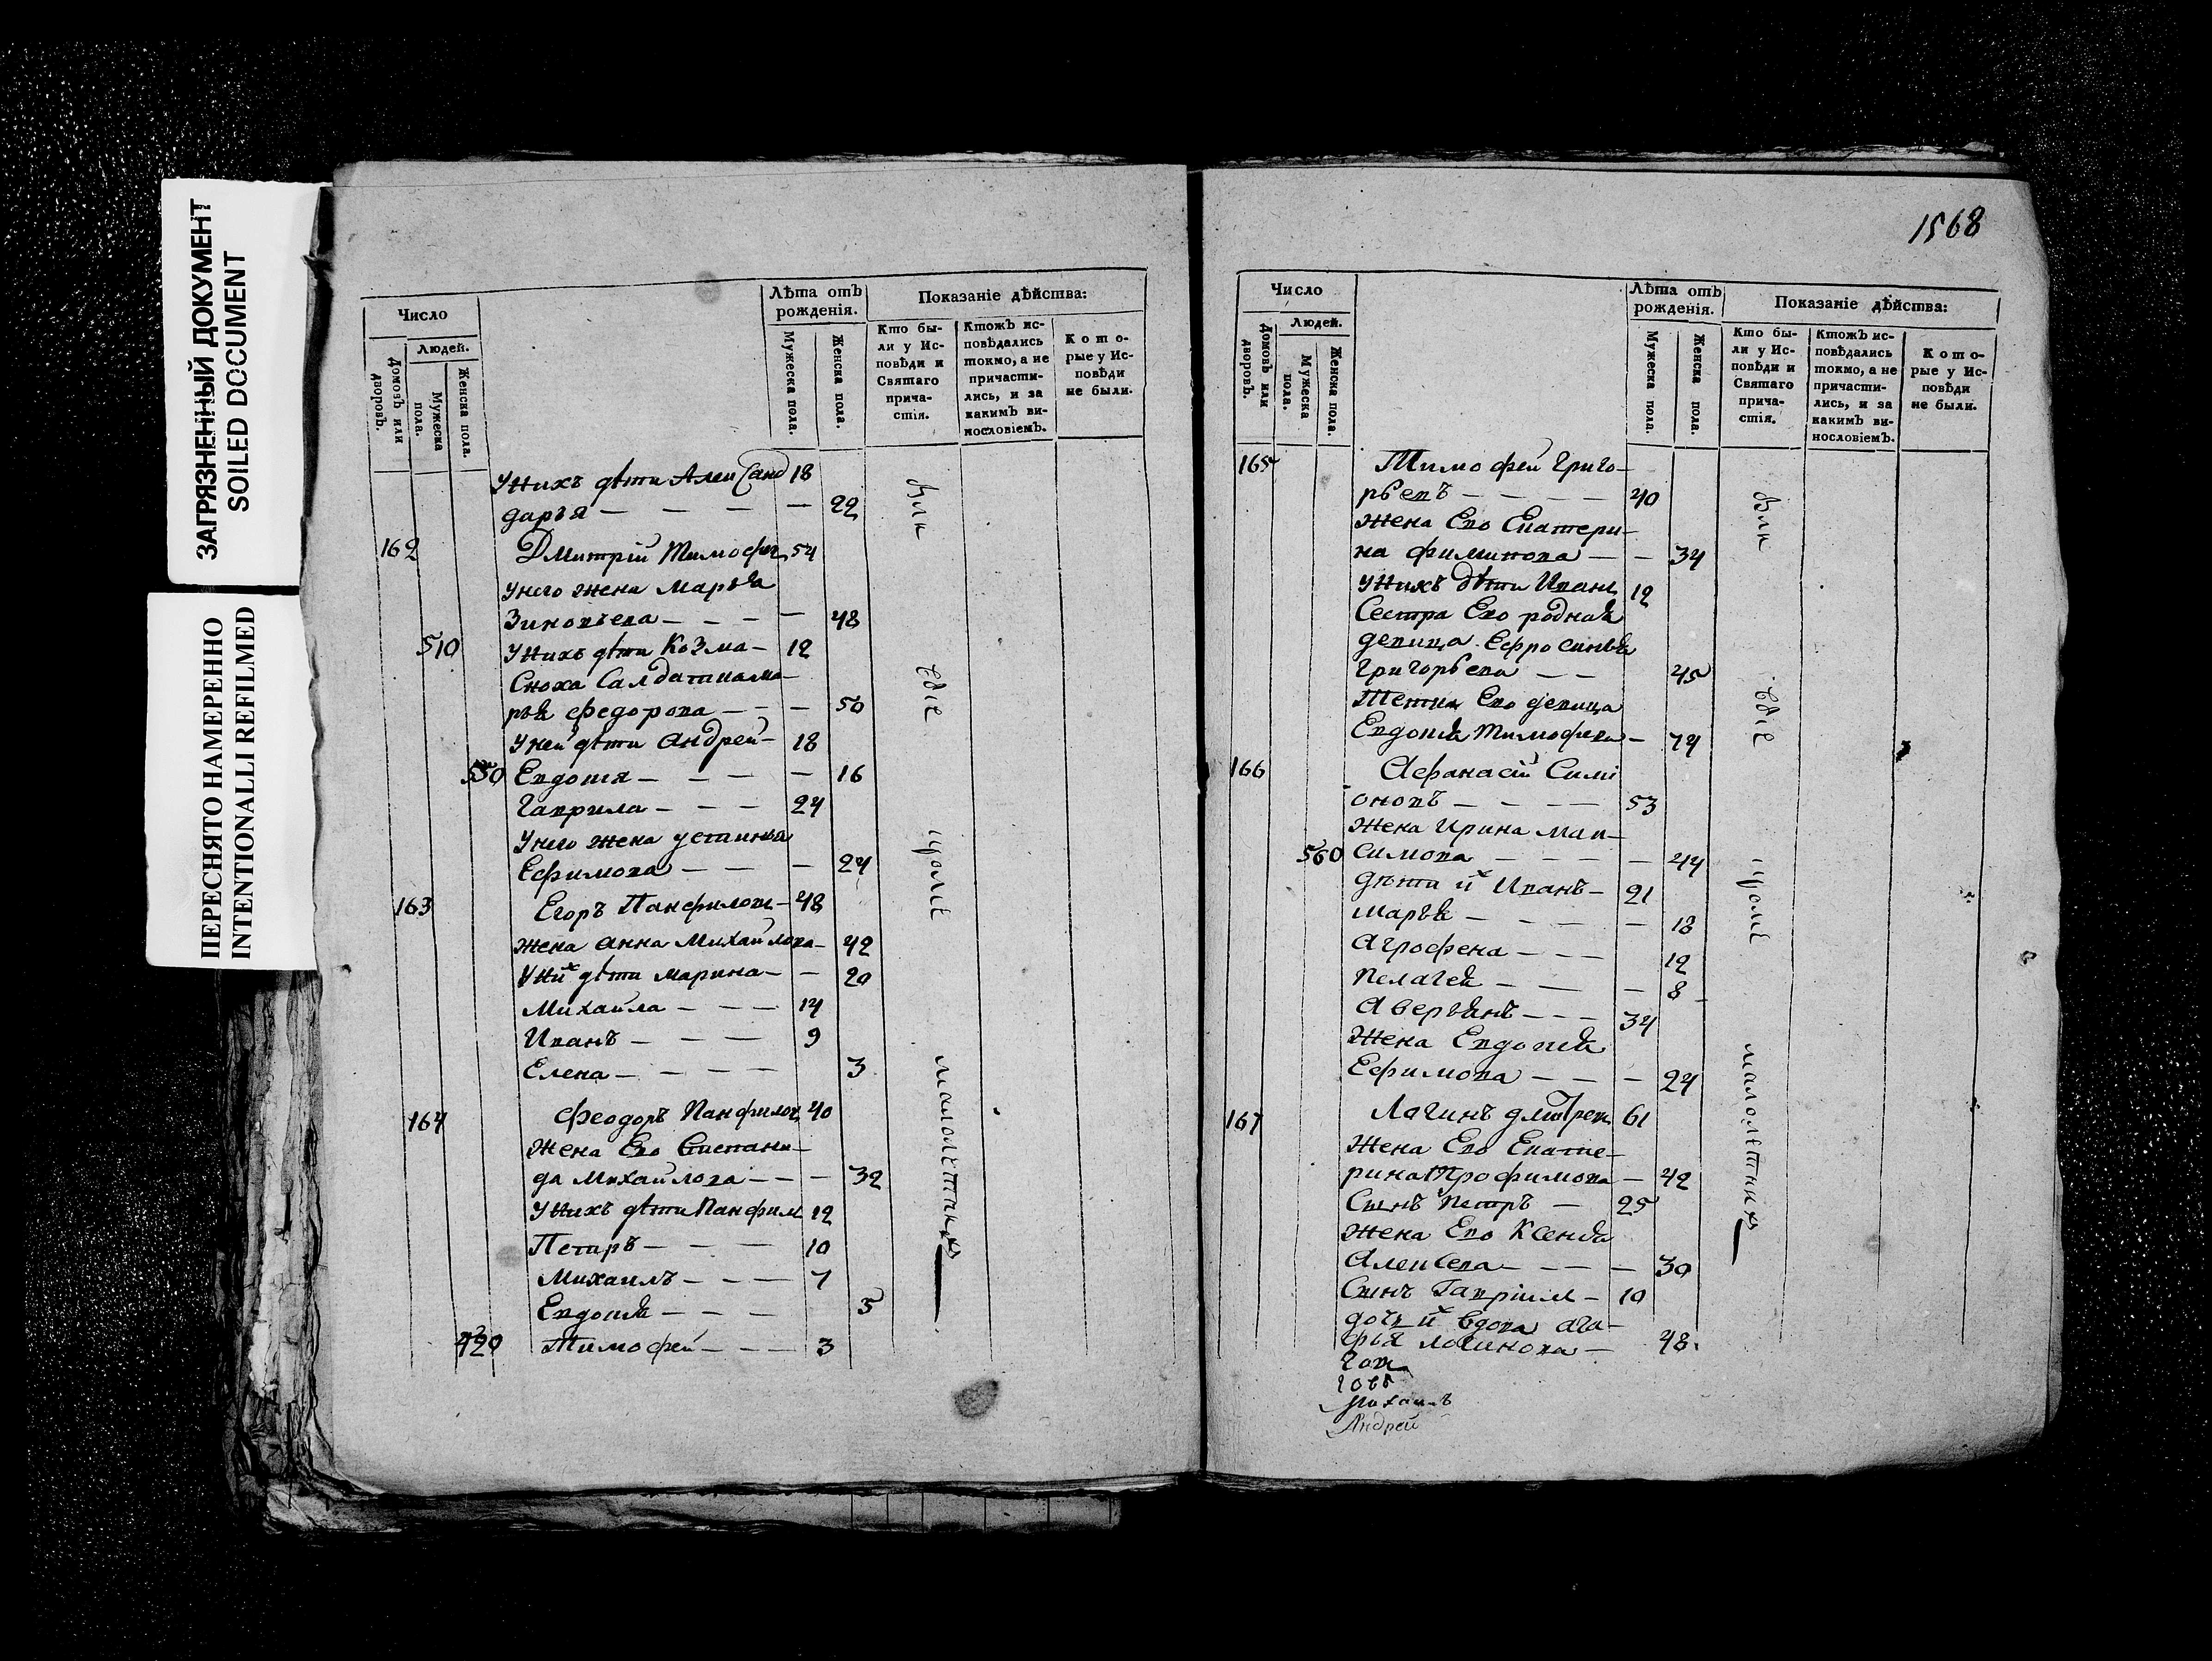 ЗАГРЯЗНЕННЫЙ ДОКУМЕНТ
SOILED DOCUMENT
ПЕРЕСНЯТО НАМЕРЕННО
INTENTIONALLI REFILMED
Число
Людей.
Домовъ или дворовъ.
Мужеска пола.
Женска пола.
Лѣта отъ рожденія.
Мужеска пола.
Женска пола.
Показаніе дѣйства:
Кто бы-
ли у Ис-
повѣди и
Святаго
прича-
стія.
Ктожъ ис-
повѣдались
токмо, а не
причасти-
лись, и за
какимъ ви-
нословіемъ.
Кото-
рые у Ис-
повѣди
не были.
У нихъ дѣти Александ 18
дарья — — — — 22
162 Дмитрій Тимофее 54
У него жена Марья
Зиновьева — — — — 48
510 У нихъ дѣти Козма — 12
Сноха Салдатка ма-
рья Федорова — — — 50
У ней дѣти Андрей — 18
550 Евдотя — — — — 16
Гаврила — — — 24
У него жена устинья
Ефимова — — — 24
163 Егоръ Панфилов — 48
жена анна Михайлова — 42
У них дѣти марина — — 20
Михайла — — — 14
Иванъ — — — 9
Елена — — — — 3
164 Феодоръ Панфилов 40
Жена Его Степани-
да Михайлова — — — 32
У нихъ дѣти Панфил 12
Петръ — — — 10
Михаилъ — — — 7
Евдотья — — — 5
420 Тимофей — — — 3
Вси
сіе
кромѣ
малолѣтних
1568
Число
Людей.
Домовъ или дворовъ.
Мужеска пола.
Женска пола.
Лѣта отъ рожденія.
Мужеска пола.
Женска пола.
Показаніе дѣйства:
Кто бы-
ли у Ис-
повѣди и
Святаго
прича-
стія.
Ктожъ ис-
повѣдались
токмо, а не
причасти-
лись, и за
какимъ ви-
нословіемъ.
Кото-
рые у Ис-
повѣди
не были.
165 Тимофей Григо-
рьевъ — — — — 40
жена Его Екатери-
на филипова — — 34
У нихъ дѣти Иванъ 12
Сестра Его родная
девица Ефросинья
Григорьева — — 45
Тетка Его девица
Евдотья Тимофеева — 74
166 Афанасій Симі
оновъ — — — — 53
жена Ирина мак-
560 симова — — — — 44
дѣти их Иванъ — 21
марья — — — — 18
Агрофена — — — 12
Пелагея — — — 8
Аверьянъ — — — 34
Жена Евдотья
Ефимова — — — 24
167 Логинъ дмитрев 61
Жена Его Екате-
рина Трофимова — 42
Сынъ Петръ — 25
жена Его Ксенья
Алексева — — — 30
Сынъ Гавріил — 10
дочь их вдова ага-
фья логинова — 48.
Говѣ
Михаилъ
Андрей
Вси
сіе
кромѣ
малолѣтних